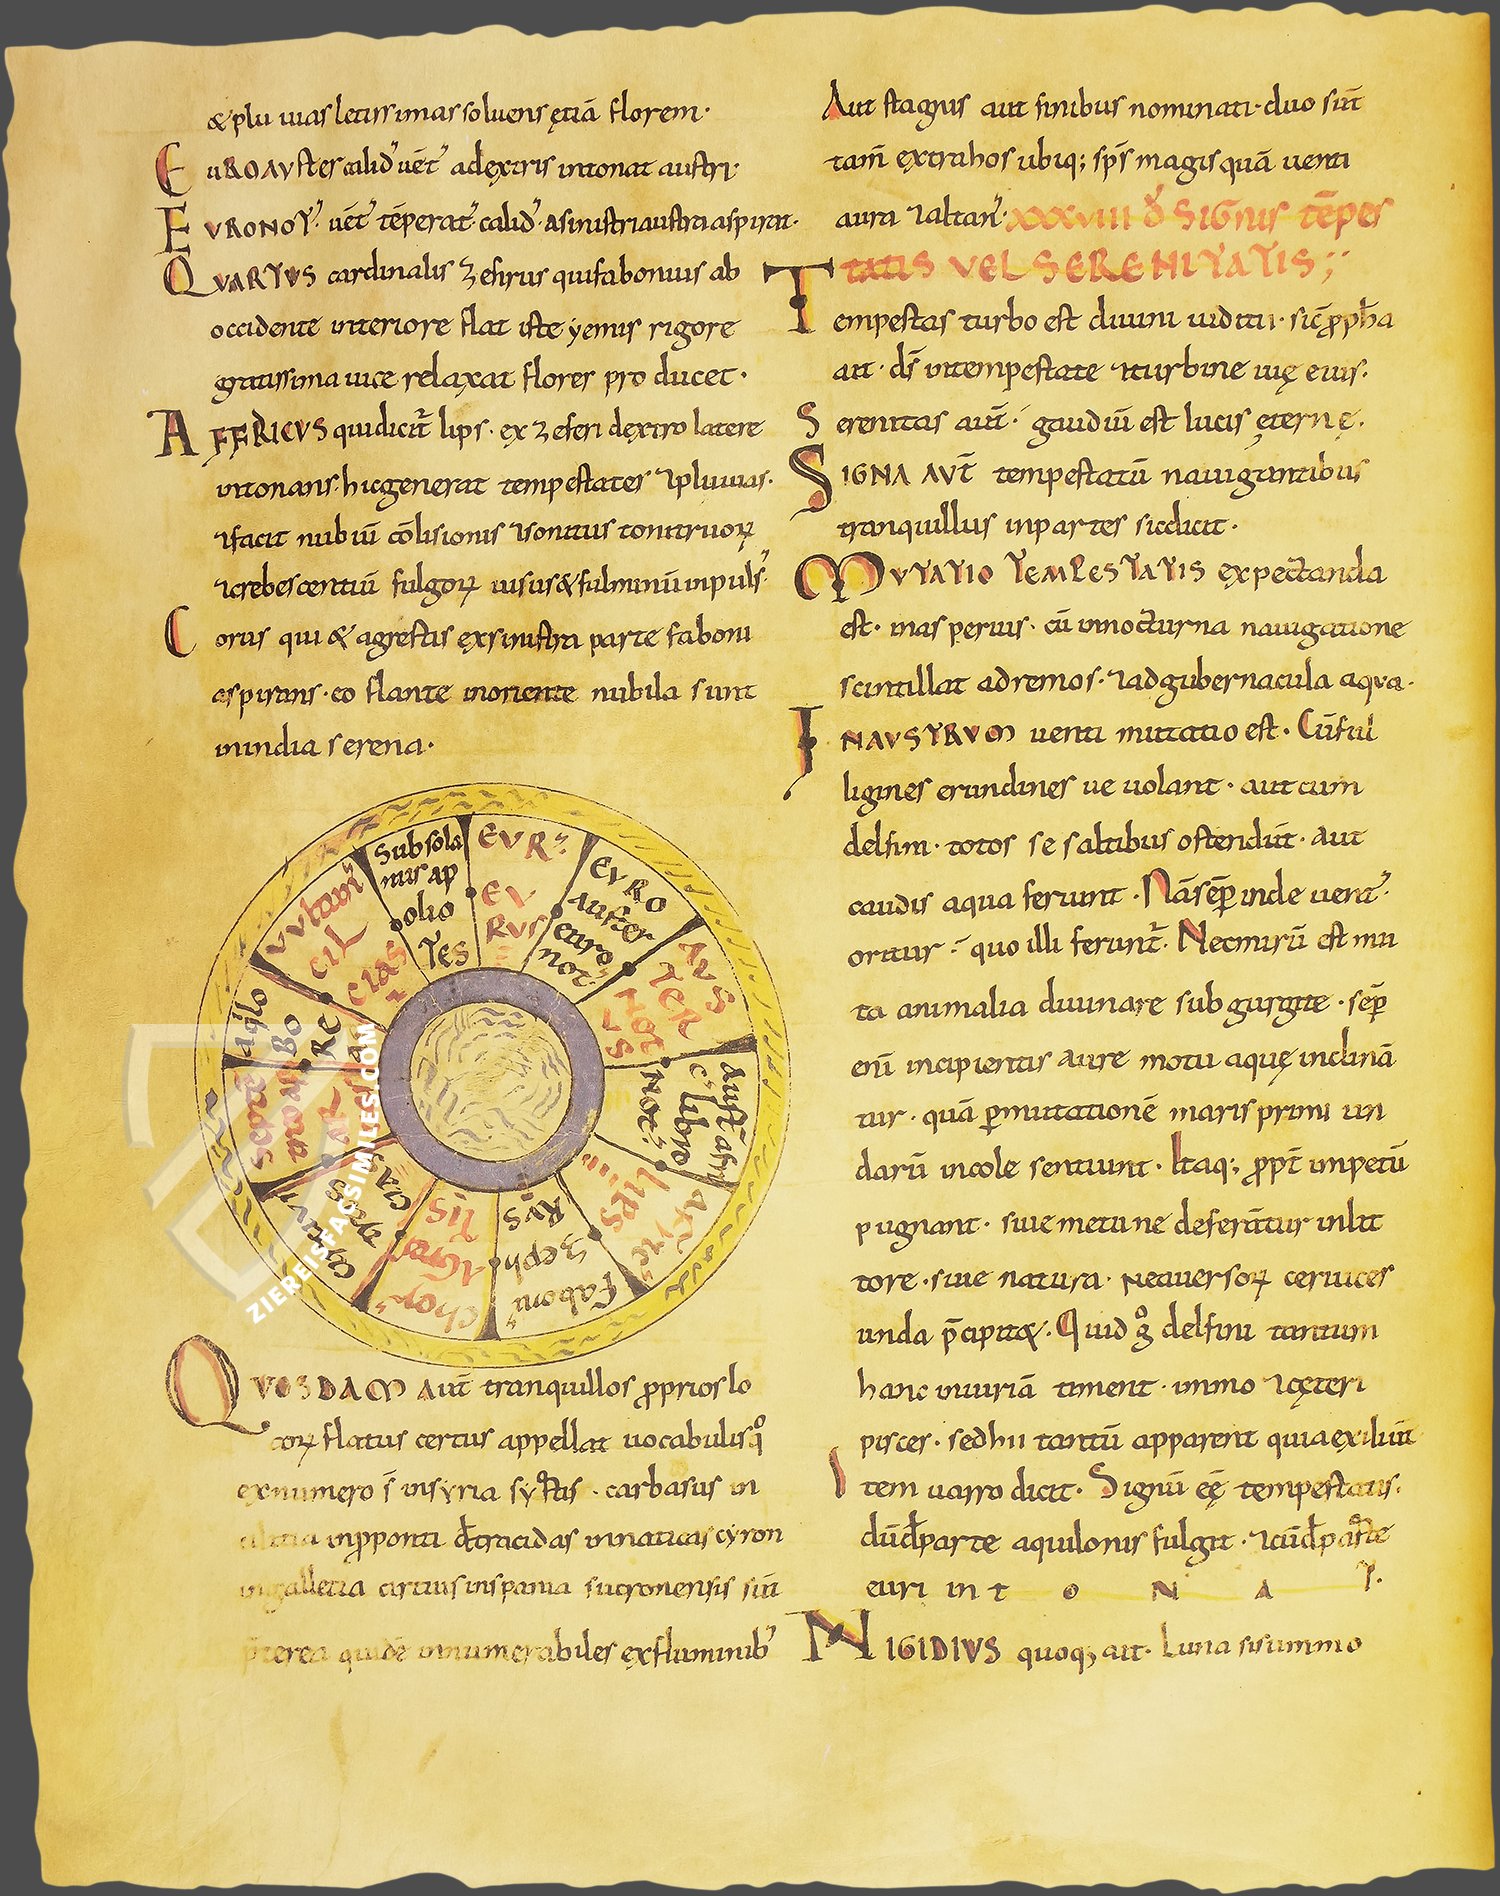 & plu uias letissimas soluens ętiā florem·
EUROAUSTER calid' uēt' adextris intonat austri·
EURONOT' uēt' tēperat' calid' asinistri austri aspirat·
QUARTUS cardinalis zefirus qui fabonius ab
occidente interiore flat iste yemis rigore
gratissima uice relaxat flores pro ducet·
AFFRICUS qui dicit̃ lips· ex zeferi dextro latere
intonans· hic generat tempestates ⁊ pluuias·
⁊ facit nubiū cōlisionis ⁊ sonitus tonitruoꝝ
⁊ crebescentiū fulgoꝝ uisus & fulminū inpuls'·
Corus qui & agrestis ex sinistra parte faboni
aspirans· eo flante inoriente nubila sunt
inindia serena·
subsola
nus ap
olio
Tes
EUR'
EU
RUS
EURO
Auster
euro
not'
AUS
TER
Not
US
austr̄ afri
c' libo
Not'
Afric'
Lips
faboni'
zeph
RUS
chor'
Agres
Tis
circius
Tras
cias
septe
ntrio
aqilo
BO
RE
uulturn'
CIL
cias
QUOSDAM aut̄ tranquillos ꝓprios lo
coꝝ flatus certus appellat uocabulis qͦ
ex numero s̄ insyria syrtis· carbasus in
inꝓponti dt̄racidas innaticas cyron
ingalleria cirtius inspania sucronensis sūt
p̄terea quidē innumerabiles ex fluminib'
Aut stagnis aut finibus nominati· duo sūt
tam̄ extra hos ubiq; sp̄s magis quā uenti
aura ⁊ altan'· XXXVIII D̄ SIGNIS TĒPES
TATIS VEL SERENITATIS;
Tempestas turbo est diuini iuditii· sic ꝓph̄a
ait· ds̄ intempestate ⁊ turbine uię eius·
Serenitas aūt· gaudiū est lucis ęternę·
SIGNA AUT̄ tempestatū nauigantibus
tranquillus inpartes sic dicit·
MUTATIO TEMPESTATIS expectanda
est· inasperius· cū innocturna nauigatione
scintillat adremos· ⁊ adgubernacula aqua·
INAUSTRUM uenti mutatio est· Cū ful
ligines erundines ue uolant· aut cum
delfini· totos se saltibus ostendūt· aut
caudis aqua feriunt· Nā sēp̄ inde uent'
oritur· quo illi ferunt̃· Nec mirū est mu
ta animalia diuinare sub gurgite· sēp̄
enī incipientis aure motu aquę inclinā
tur· quā p̄mutationē maris primi un
darū incole sentiunt· Itaq; ꝓpt̄ impetū
pugnant· siue metu ne deferātur inlit
tore· siue natura· ne auersoꝝ ceruices
unda p̄cipitæ· Quid gͦ delfini tantum
hanc iniuriā timent· immo ⁊ cęteri
pisces· sed hii tantū apparent quia exiliūt
Item uarro dicit· Signū eē tempestatis·
dū dp̄arte aquilonis fulgit· ⁊ cū dp̄arte
euri int O N A T·
NIGIDIUS quoq; ait· Luna si summo
ZIEREISFACSIMILES.COM